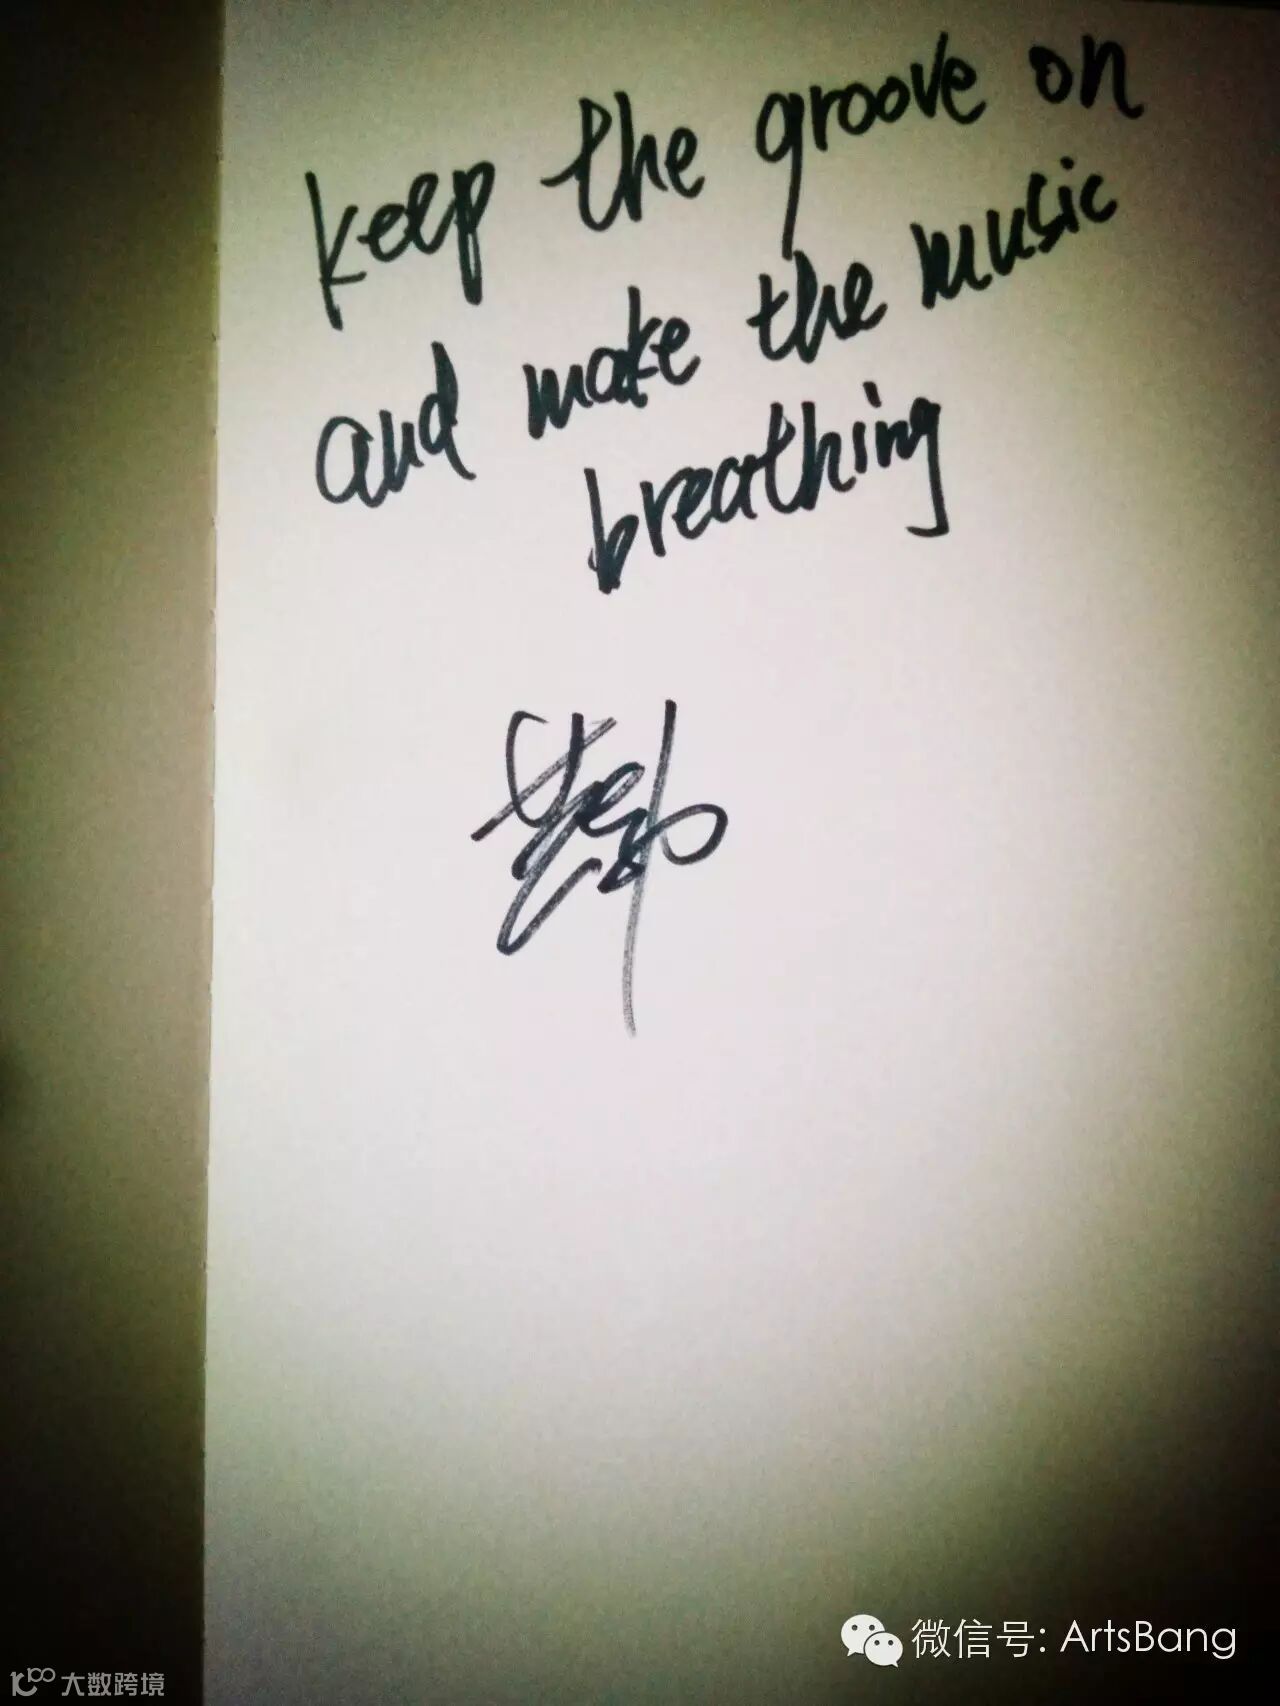 keep the groove on
and make the music
breathing
微信号: ArtsBang
大数跨境